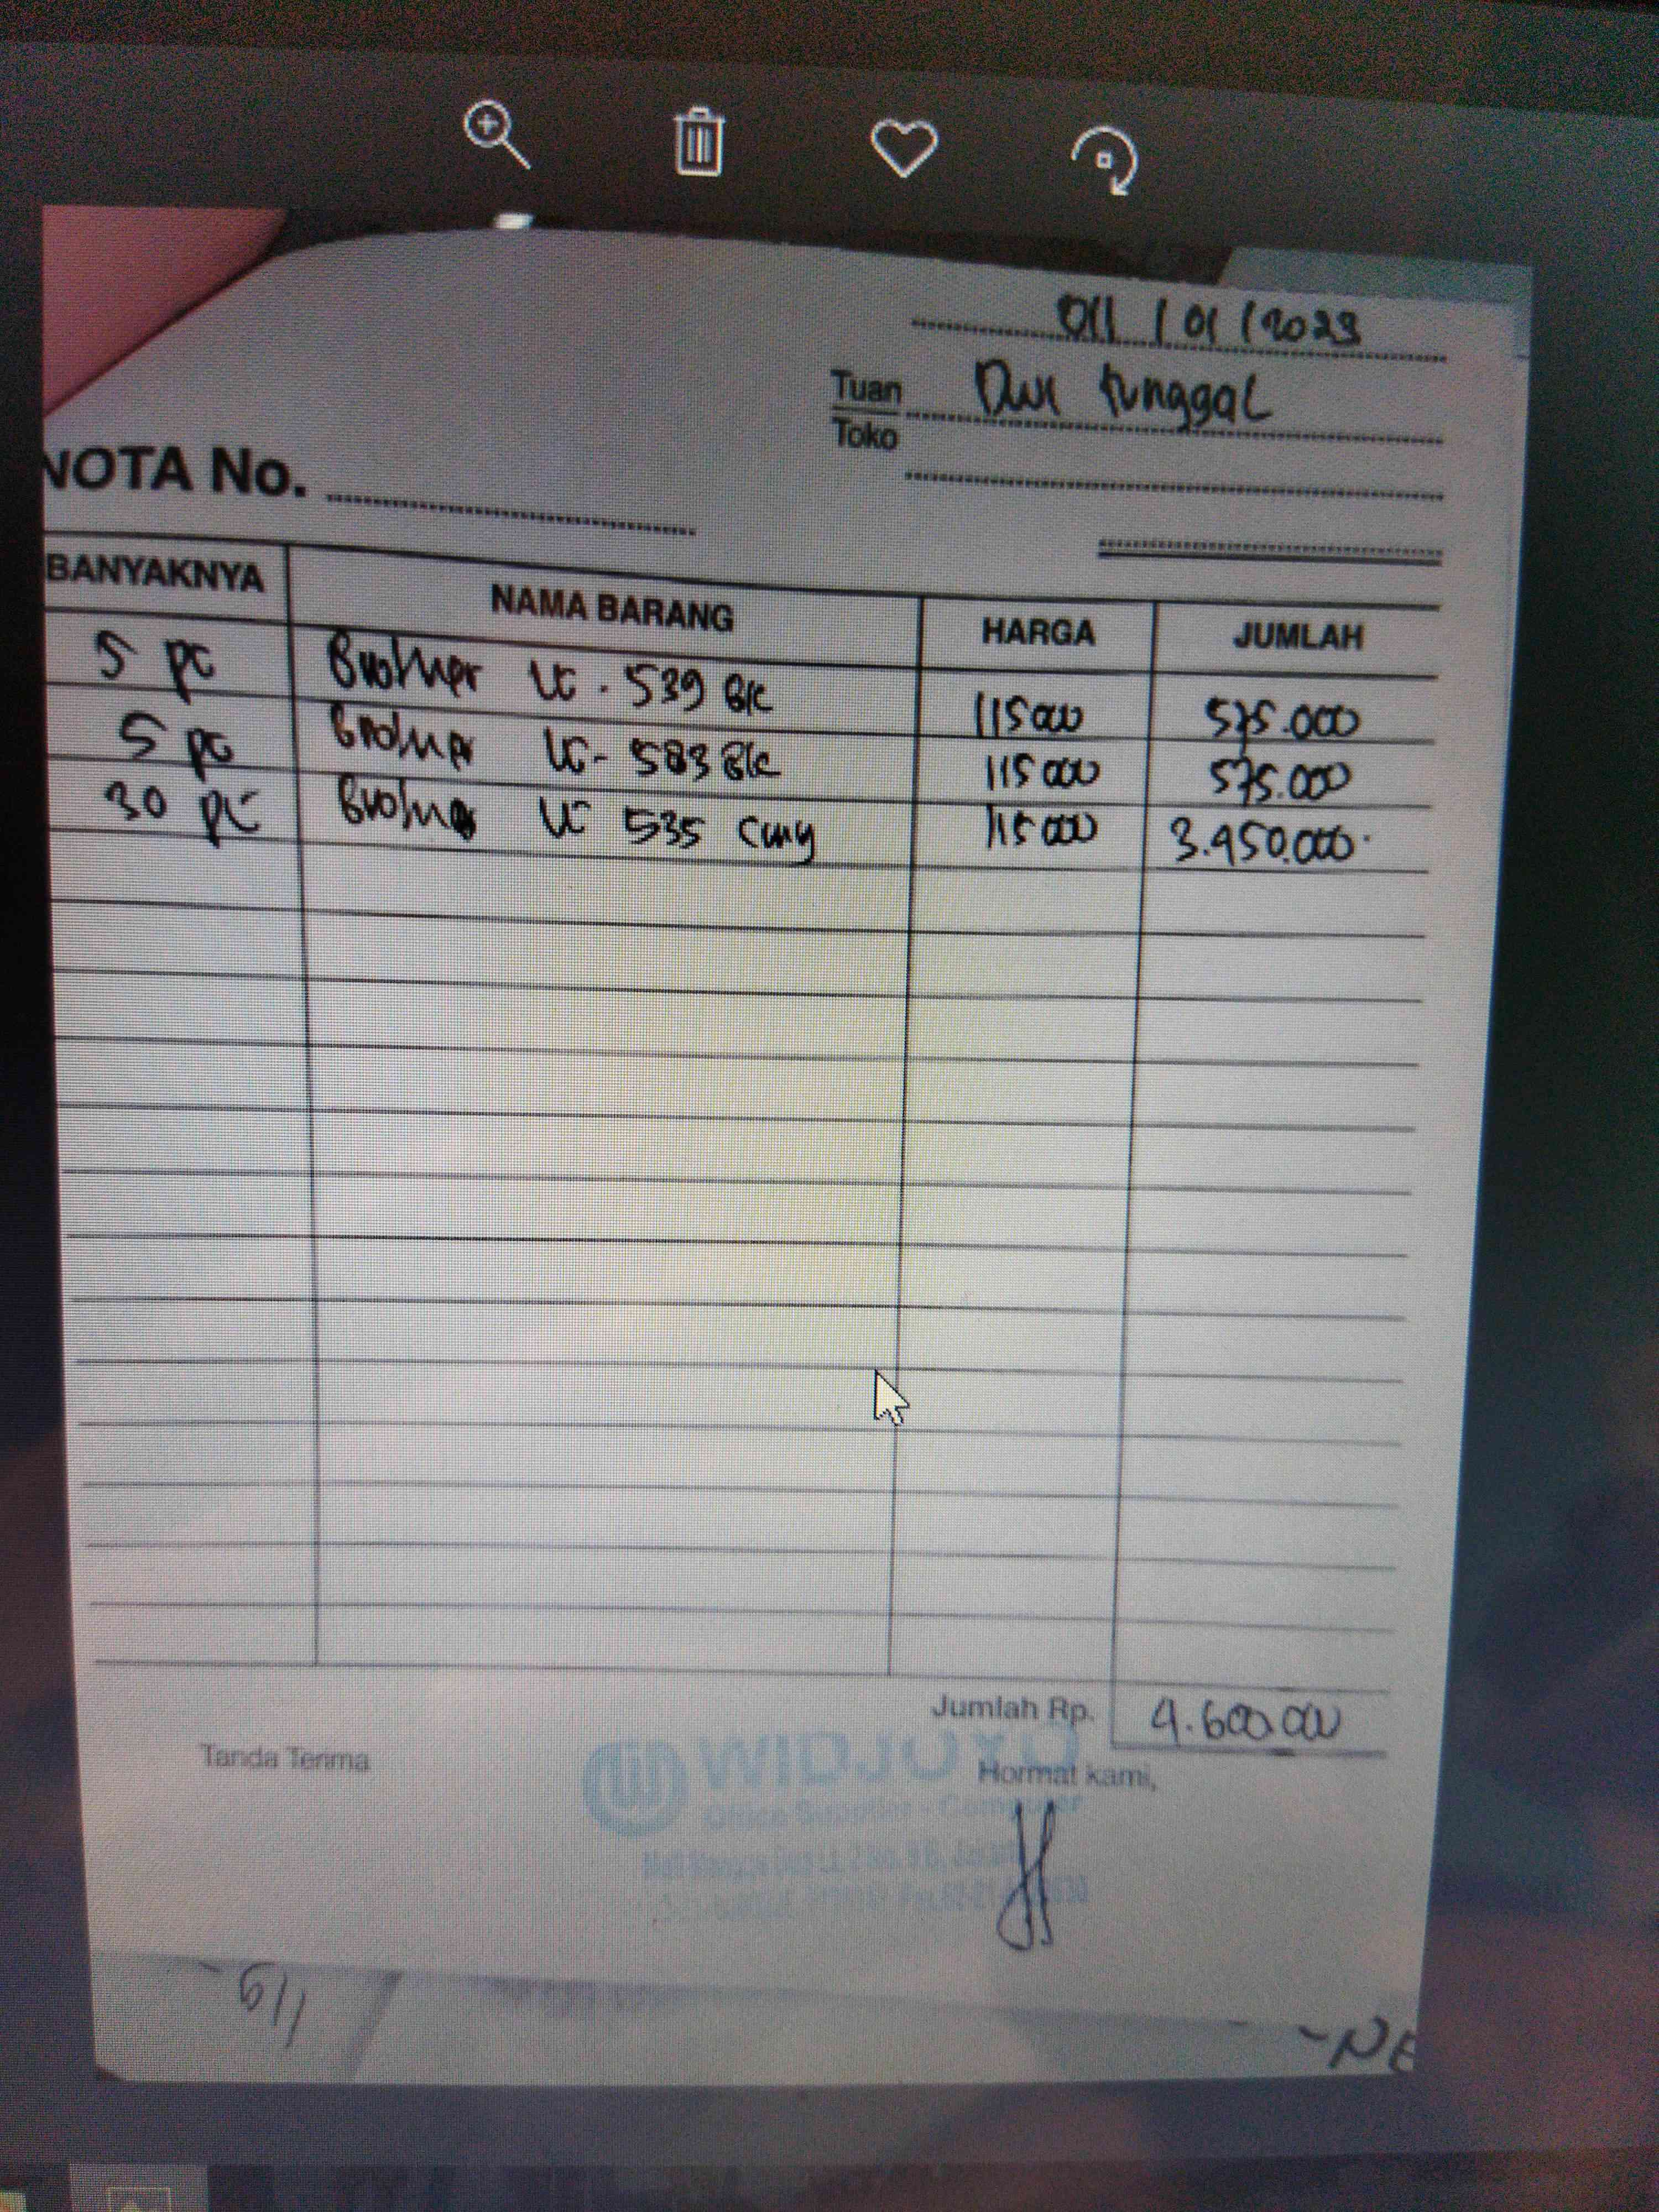 011 / 01 / 2023
Tuan Dwi tunggal
Toko
NOTA No.
BANYAKNYA NAMA BARANG HARGA JUMLAH
5 pc Brother LC - 539 BK 115000 575.000
5 pc Brother LC - 583 BK 115 000 575.000
30 pc Brother LC 535 cmy 115 000 3.450.000
Jumlah Rp. 4.600.000
Tanda Terima Hormat kami,
WIDJOYO
Office Supplier - Computer